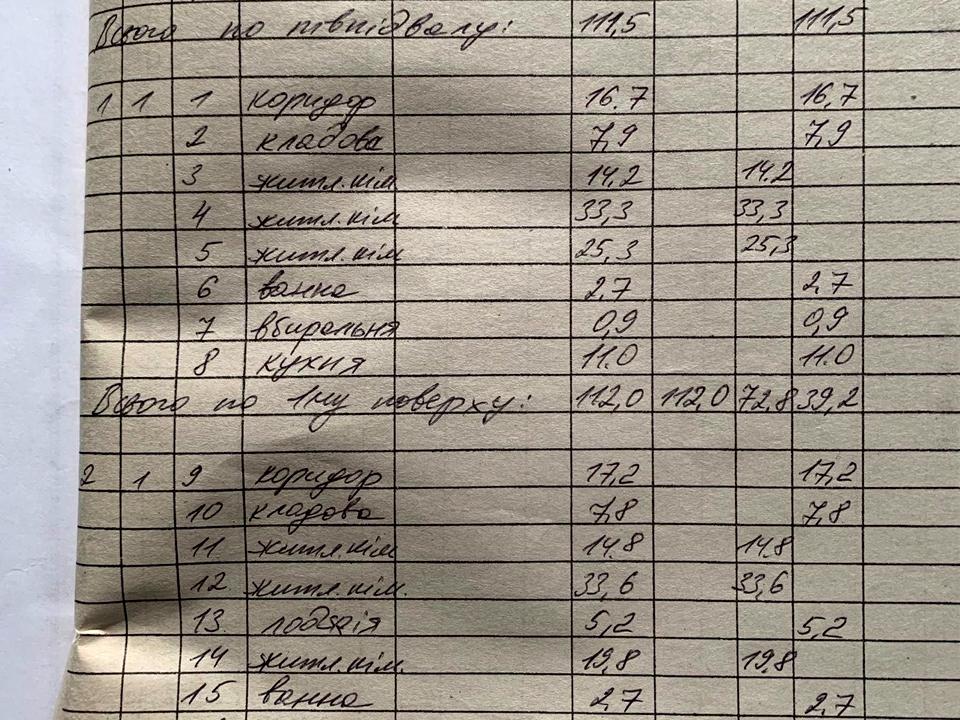 Всього по півпідвалу: 111,5 111,5
1 1 1 коридор 16.7 16,7
2 кладова 7,9 7,9
3 житл.кім 14,2 14.2
4 житл.кім 33,3 33,3
5 житл.кім 25,3 25,3
6 ванна 2,7 2,7
7 вбиральня 0,9 0,9
8 кухня 11.0 11.0
Всього по 1му поверху: 112,0 112,0 72,8 39,2
2 1 9 коридор 17,2 17,2
10 кладова 7,8 7,8
11 житл.кім 14.8 14.8
12 житл.кім. 33,6 33,6
13 лоджія 5,2 5,2
14 житл.кім. 19,8 19,8
15 ванна 2,7 2,7